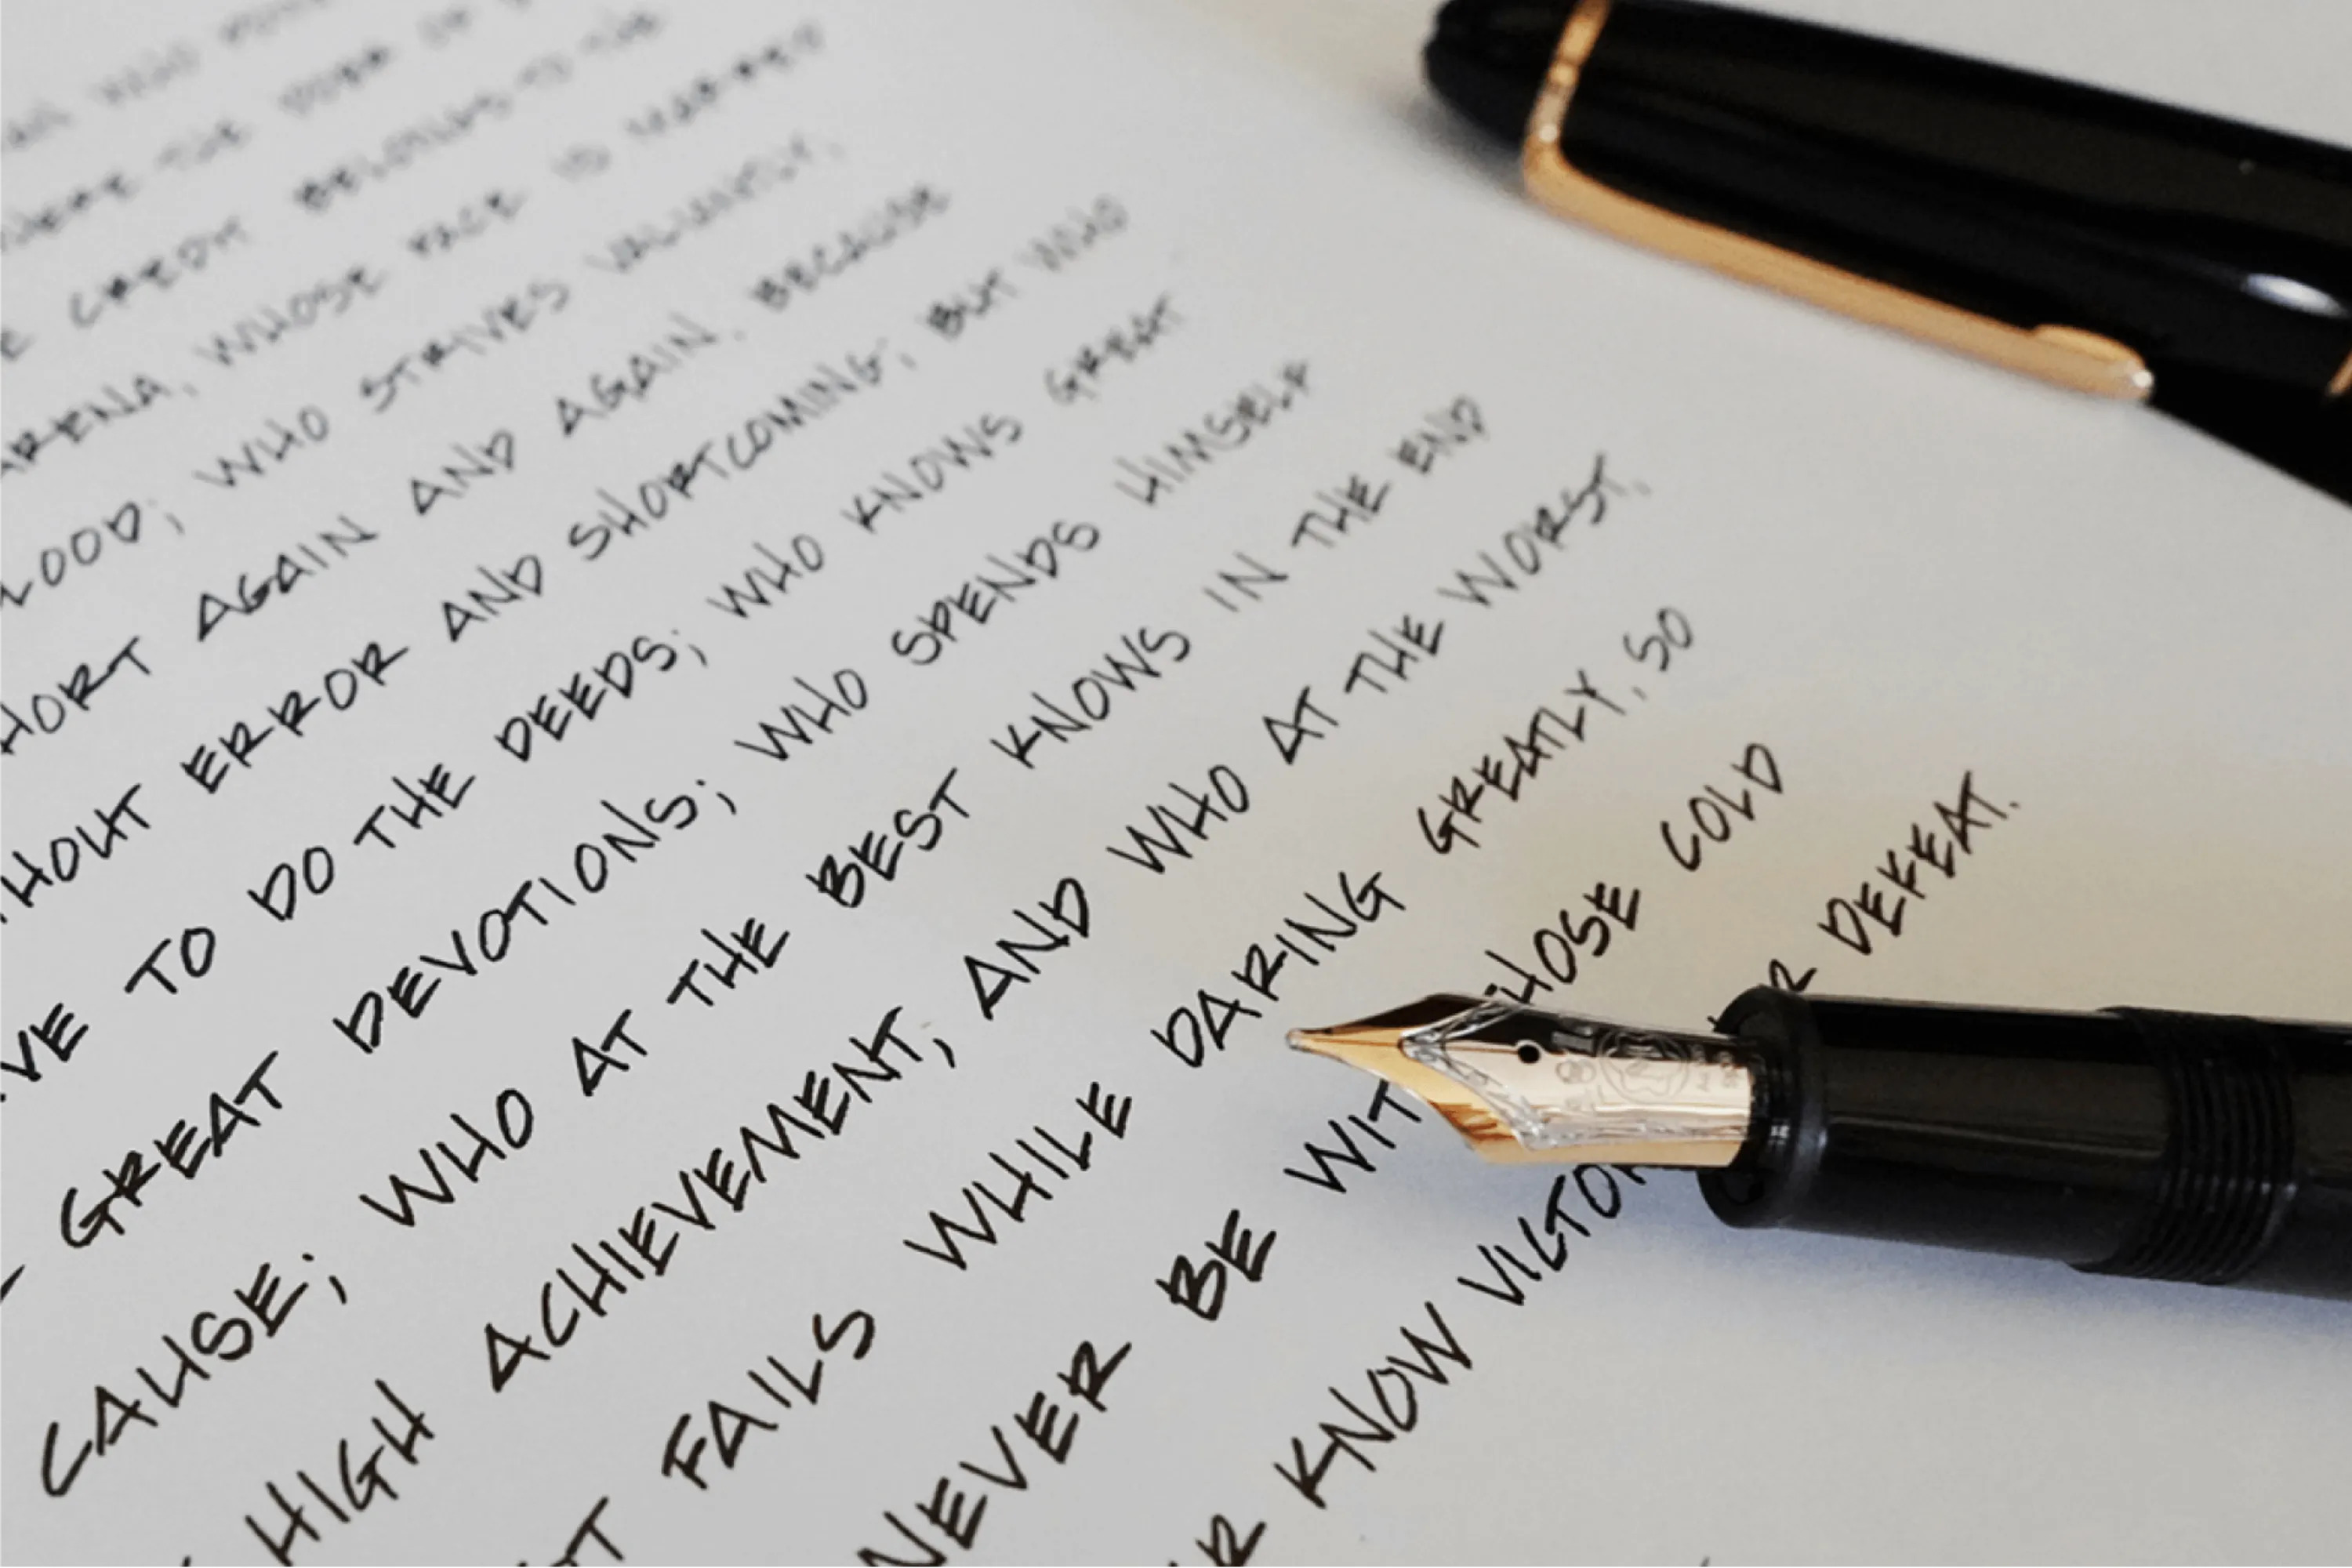 WHO
THE DOER OF
CREDIT BELONGS TO THE
ARENA, WHOSE FACE IS MARRED
LOOD; WHO STRIVES VALIANTLY,
HORT AGAIN AND AGAIN, BECAUSE
HOUT ERROR AND SHORTCOMING; BUT WHO
VE TO DO THE DEEDS; WHO KNOWS GREAT
GREAT DEVOTIONS; WHO SPENDS HIMSELF
CAUSE; WHO AT THE BEST KNOWS IN THE END
HIGH ACHIEVEMENT, AND WHO AT THE WORST,
FAILS WHILE DARING GREATLY, SO
NEVER BE WIT HOSE COLD
R KNOW VICTOR R DEFEAT.